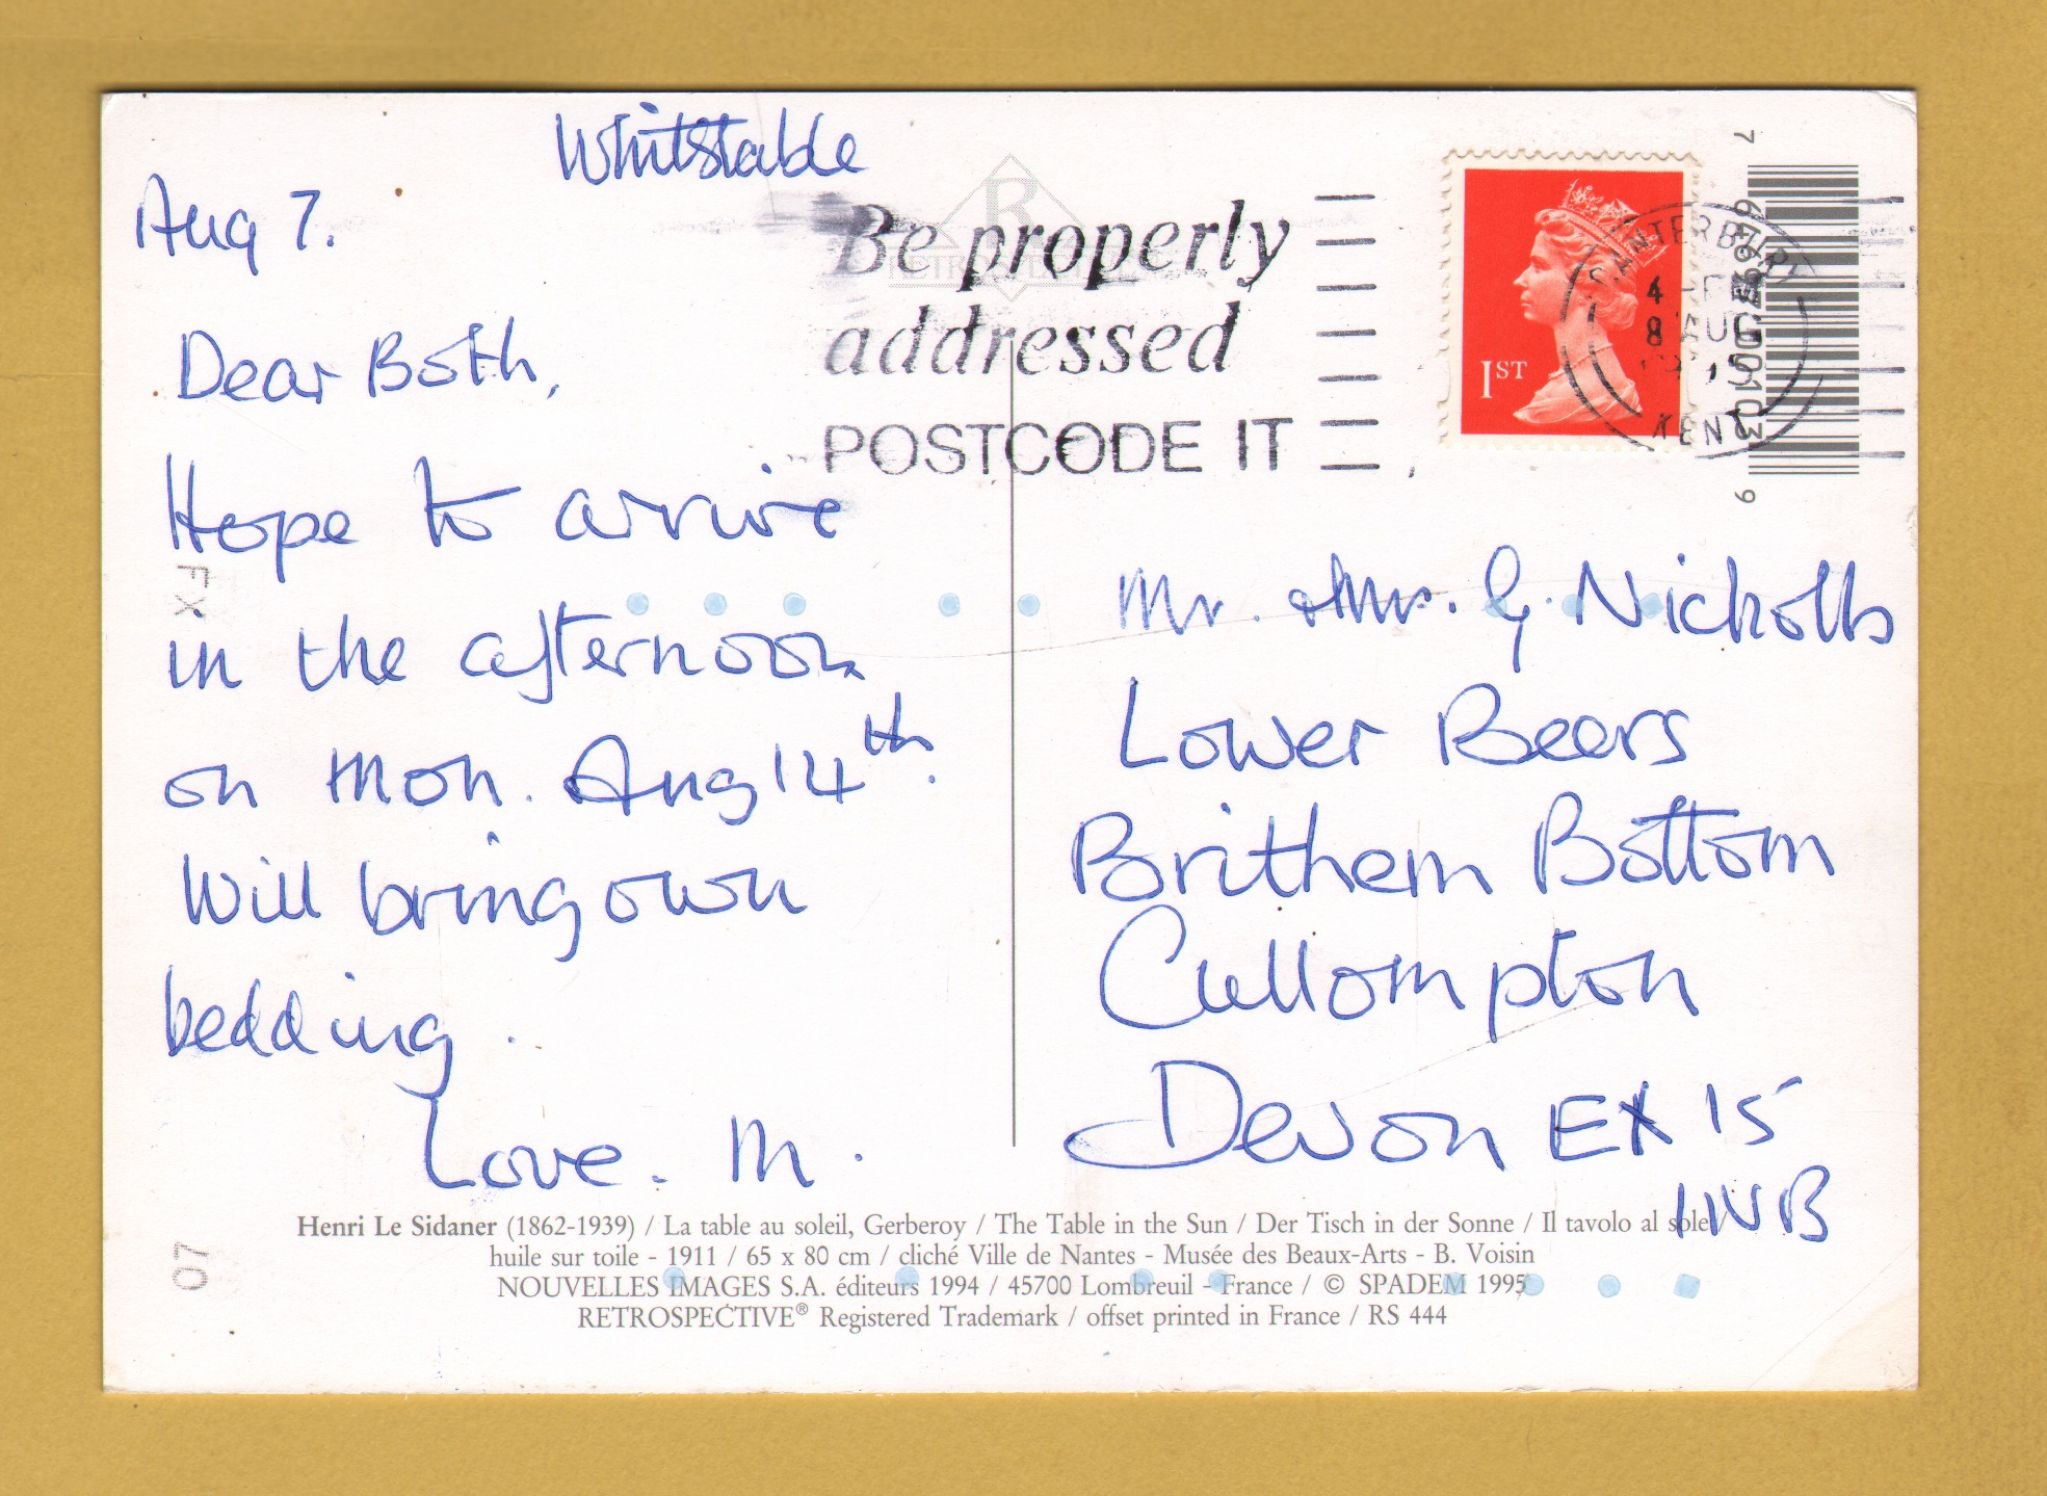 Whitstable
Aug 7.
Dear Both,
Hope to arrive
in the afternoon
on Mon. Aug 14th.
Will bring own
bedding.
Love. M.
Be properly
addressed
POSTCODE IT
1ST
CANTERBURY
8 AUG
KENT
7
9
Mr. & Mrs. G. Nicholls
Lower Beers
Brithem Bottom
Cullompton
Devon EX 15
1NB
FX
07
Henri Le Sidaner (1862-1939) / La table au soleil, Gerberoy / The Table in the Sun / Der Tisch in der Sonne / Il tavolo al sole /
huile sur toile - 1911 / 65 x 80 cm / cliché Ville de Nantes - Musée des Beaux-Arts - B. Voisin
NOUVELLES IMAGES S.A. éditeurs 1994 / 45700 Lombreuil - France / © SPADEM 1995
RETROSPECTIVE® Registered Trademark / offset printed in France / RS 444